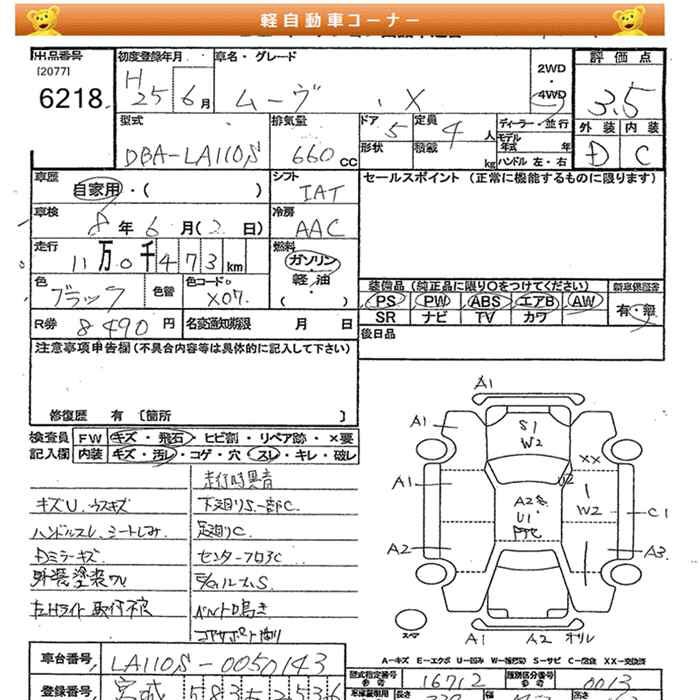 軽自動車コーナー
出品番号 初度登録年月 車名・グレード 2WD 評価点
[2077]
6218 H25年6月 ムーヴ X 4WD 3.5
型式 排気量 ドア 5 定員 4人 ディーラー・並行 外装 内装
モデル年式 年
DBA-LA110S 660cc 形状 積載 kg ハンドル 左・右 D C
車歴 自家用・( ) シフト IAT セールスポイント(正常に機能するものに限ります)
車検 8年6月(2日) 冷房 AAC
走行 11万0千473km 燃料 ガソリン・軽油
色 ブラック 色替 色コードNo. X07 装備品(純正品に限り○をつけてください) 新車保証書
PS PW ABS エアB AW 有・無
SR ナビ TV カワ
R券 8490円 名変通知期限 月 日 後日品
注意事項申告欄(不具合内容等は具体的に記入して下さい)
修復歴 有 [箇所 ]
検査員 FW キズ・飛石・ヒビ割・リペア跡・×要
記入欄 内装 キズ・汚レ・コゲ・穴・スレ・キレ・破レ
走行時異音
キズU、ウスキズ 下廻りS一部C
ハンドルスレ、シートしみ 足廻りC
Dミラーキズ センターフロアC
外装塗装ワレ E/GルームS
左Hライト取付不良 ベルト鳴き
コアサポート曲り
A1
A1 S1
W2
XX
A1 U2
A2 1
W2 C1
U1
A2 A3
スペア A1 A2
A-キズ E-エクボ U-凹み W-補修跡 S-サビ C-腐食 XX-交換済
車台番号 LA110S-0050143 型式指定番号 16712 類別区分番号 0013
登録番号 宮城 583 長さ